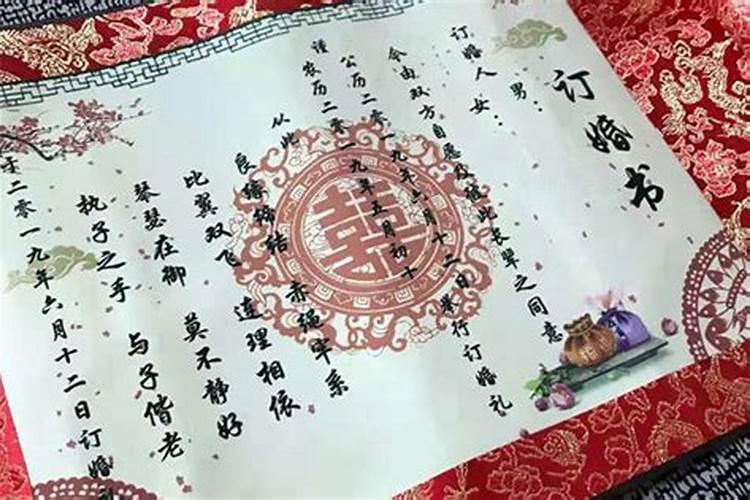 订婚书
男:
订婚人女:
今由双方自愿及彼此长辈之同意
公历二零一九年六月十二日举行订婚礼
谨农历二零一九年五月初十
从此
良缘缔结 赤绳牢系
比翼双飞 连理相依
琴瑟在御 莫不静好
执子之手 与子偕老
于二零一九年六月十二日订婚